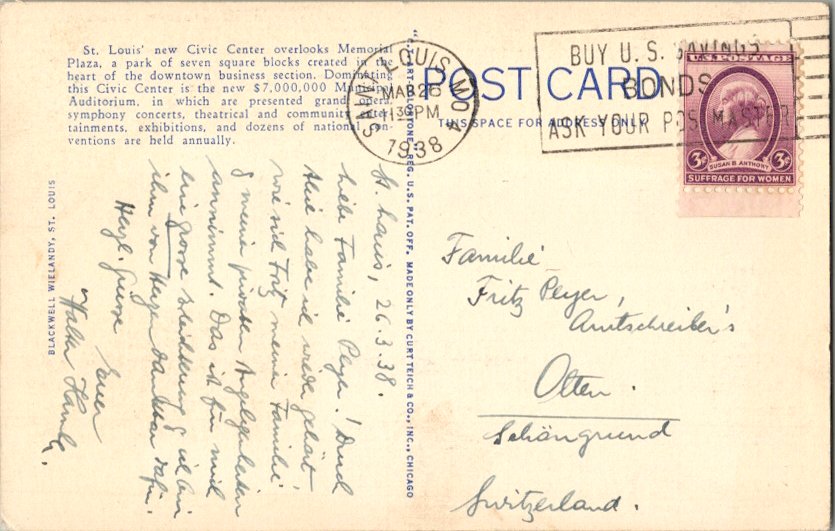 St. Louis' new Civic Center overlooks Memorial
Plaza, a park of seven square blocks created in the
heart of the downtown business section. Dominating
this Civic Center is the new $7,000,000 Municipal
Auditorium, in which are presented grand opera,
symphony concerts, theatrical and community enter-
tainments, exhibitions, and dozens of national con-
ventions are held annually.
BLACKWELL WIELANDY, ST. LOUIS
St. Louis, 26.3.38.
Liebe Familie Pleyer! Durch
Alice habe ich wieder gehört
wie sich Fritz meiner Familie
& meiner privaten Angelegenheiten
annimmt. Das ist für mich
eine grosse Erleichterung & ich bin
ihm von Herzen dankbar dafür.
Herzl. Grüsse
Euer
Walter
REG. U.S. PAT. OFF. MADE ONLY BY CURT TEICH & CO., INC., CHICAGO
POST CARD
THIS SPACE FOR ADDRESS ONLY
SAINT LOUIS, MO. 4
MAR 26
1938
BUY U.S. SAVINGS
BONDS
ASK YOUR POSTMASTER
U.S. POSTAGE
3¢ 3¢
SUSAN B. ANTHONY
SUFFRAGE FOR WOMEN
Familie
Fritz Pleyer,
Amtschreiber's
Olten.
Schöngrund
Switzerland.